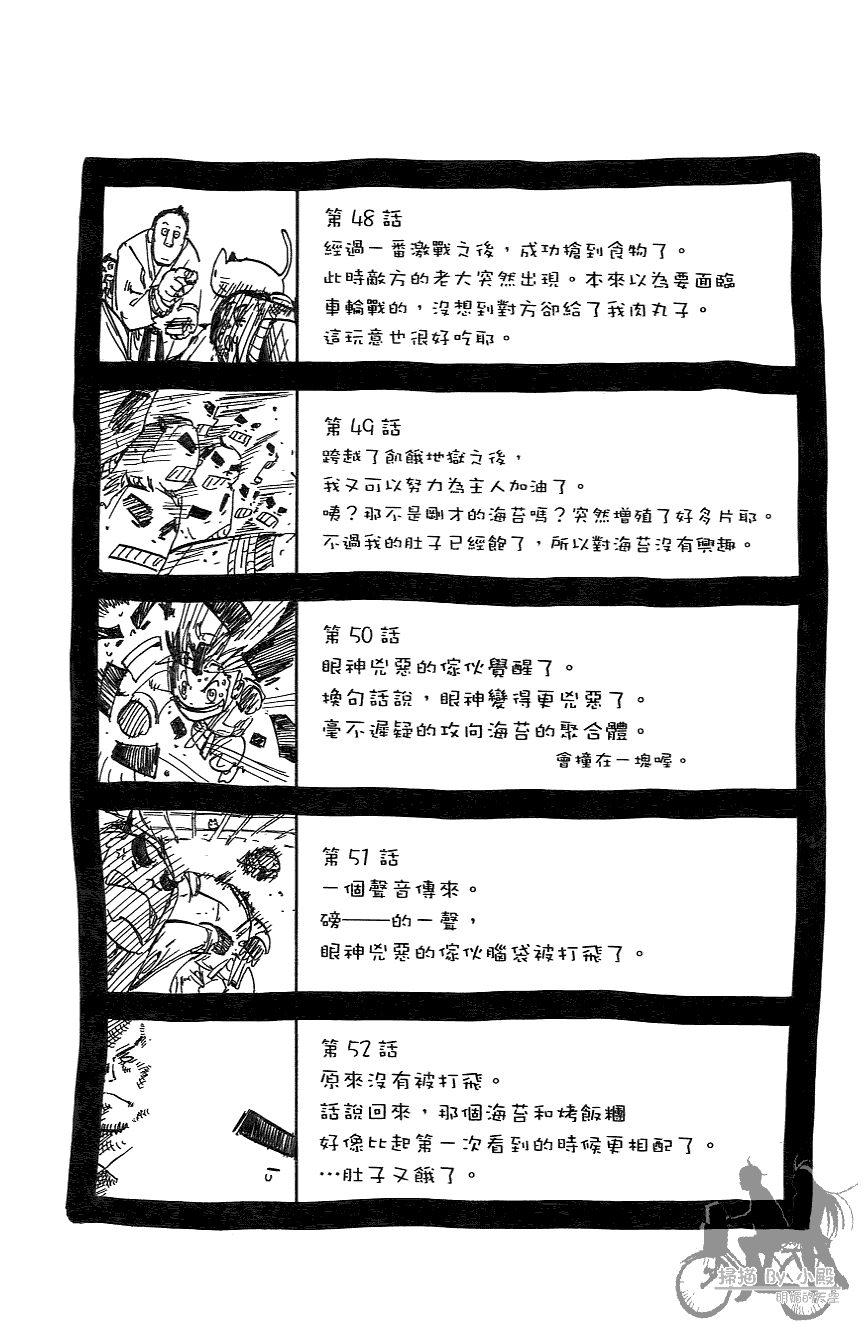 第48話
經過一番激戰之後，成功搶到食物了。
此時敵方的老大突然出現。本來以為要面臨
車輪戰的，沒想到對方卻給了我肉丸子。
這玩意也很好吃耶。
第49話
跨越了飢餓地獄之後，
我又可以努力為主人加油了。
咦？那不是剛才的海苔嗎？突然增殖了好多片耶。
不過我的肚子已經飽了，所以對海苔沒有興趣。
第50話
眼神兇惡的傢伙覺醒了。
換句話說，眼神變得更兇惡了。
毫不遲疑的攻向海苔的聚合體。
會撞在一塊喔。
第51話
一個聲音傳來。
磅——的一聲，
眼神兇惡的傢伙腦袋被打飛了。
第52話
原來沒有被打飛。
話說回來，那個海苔和烤飯糰
好像比起第一次看到的時候更相配了。
…肚子又餓了。
掃描 By 小殿
明媚的天空